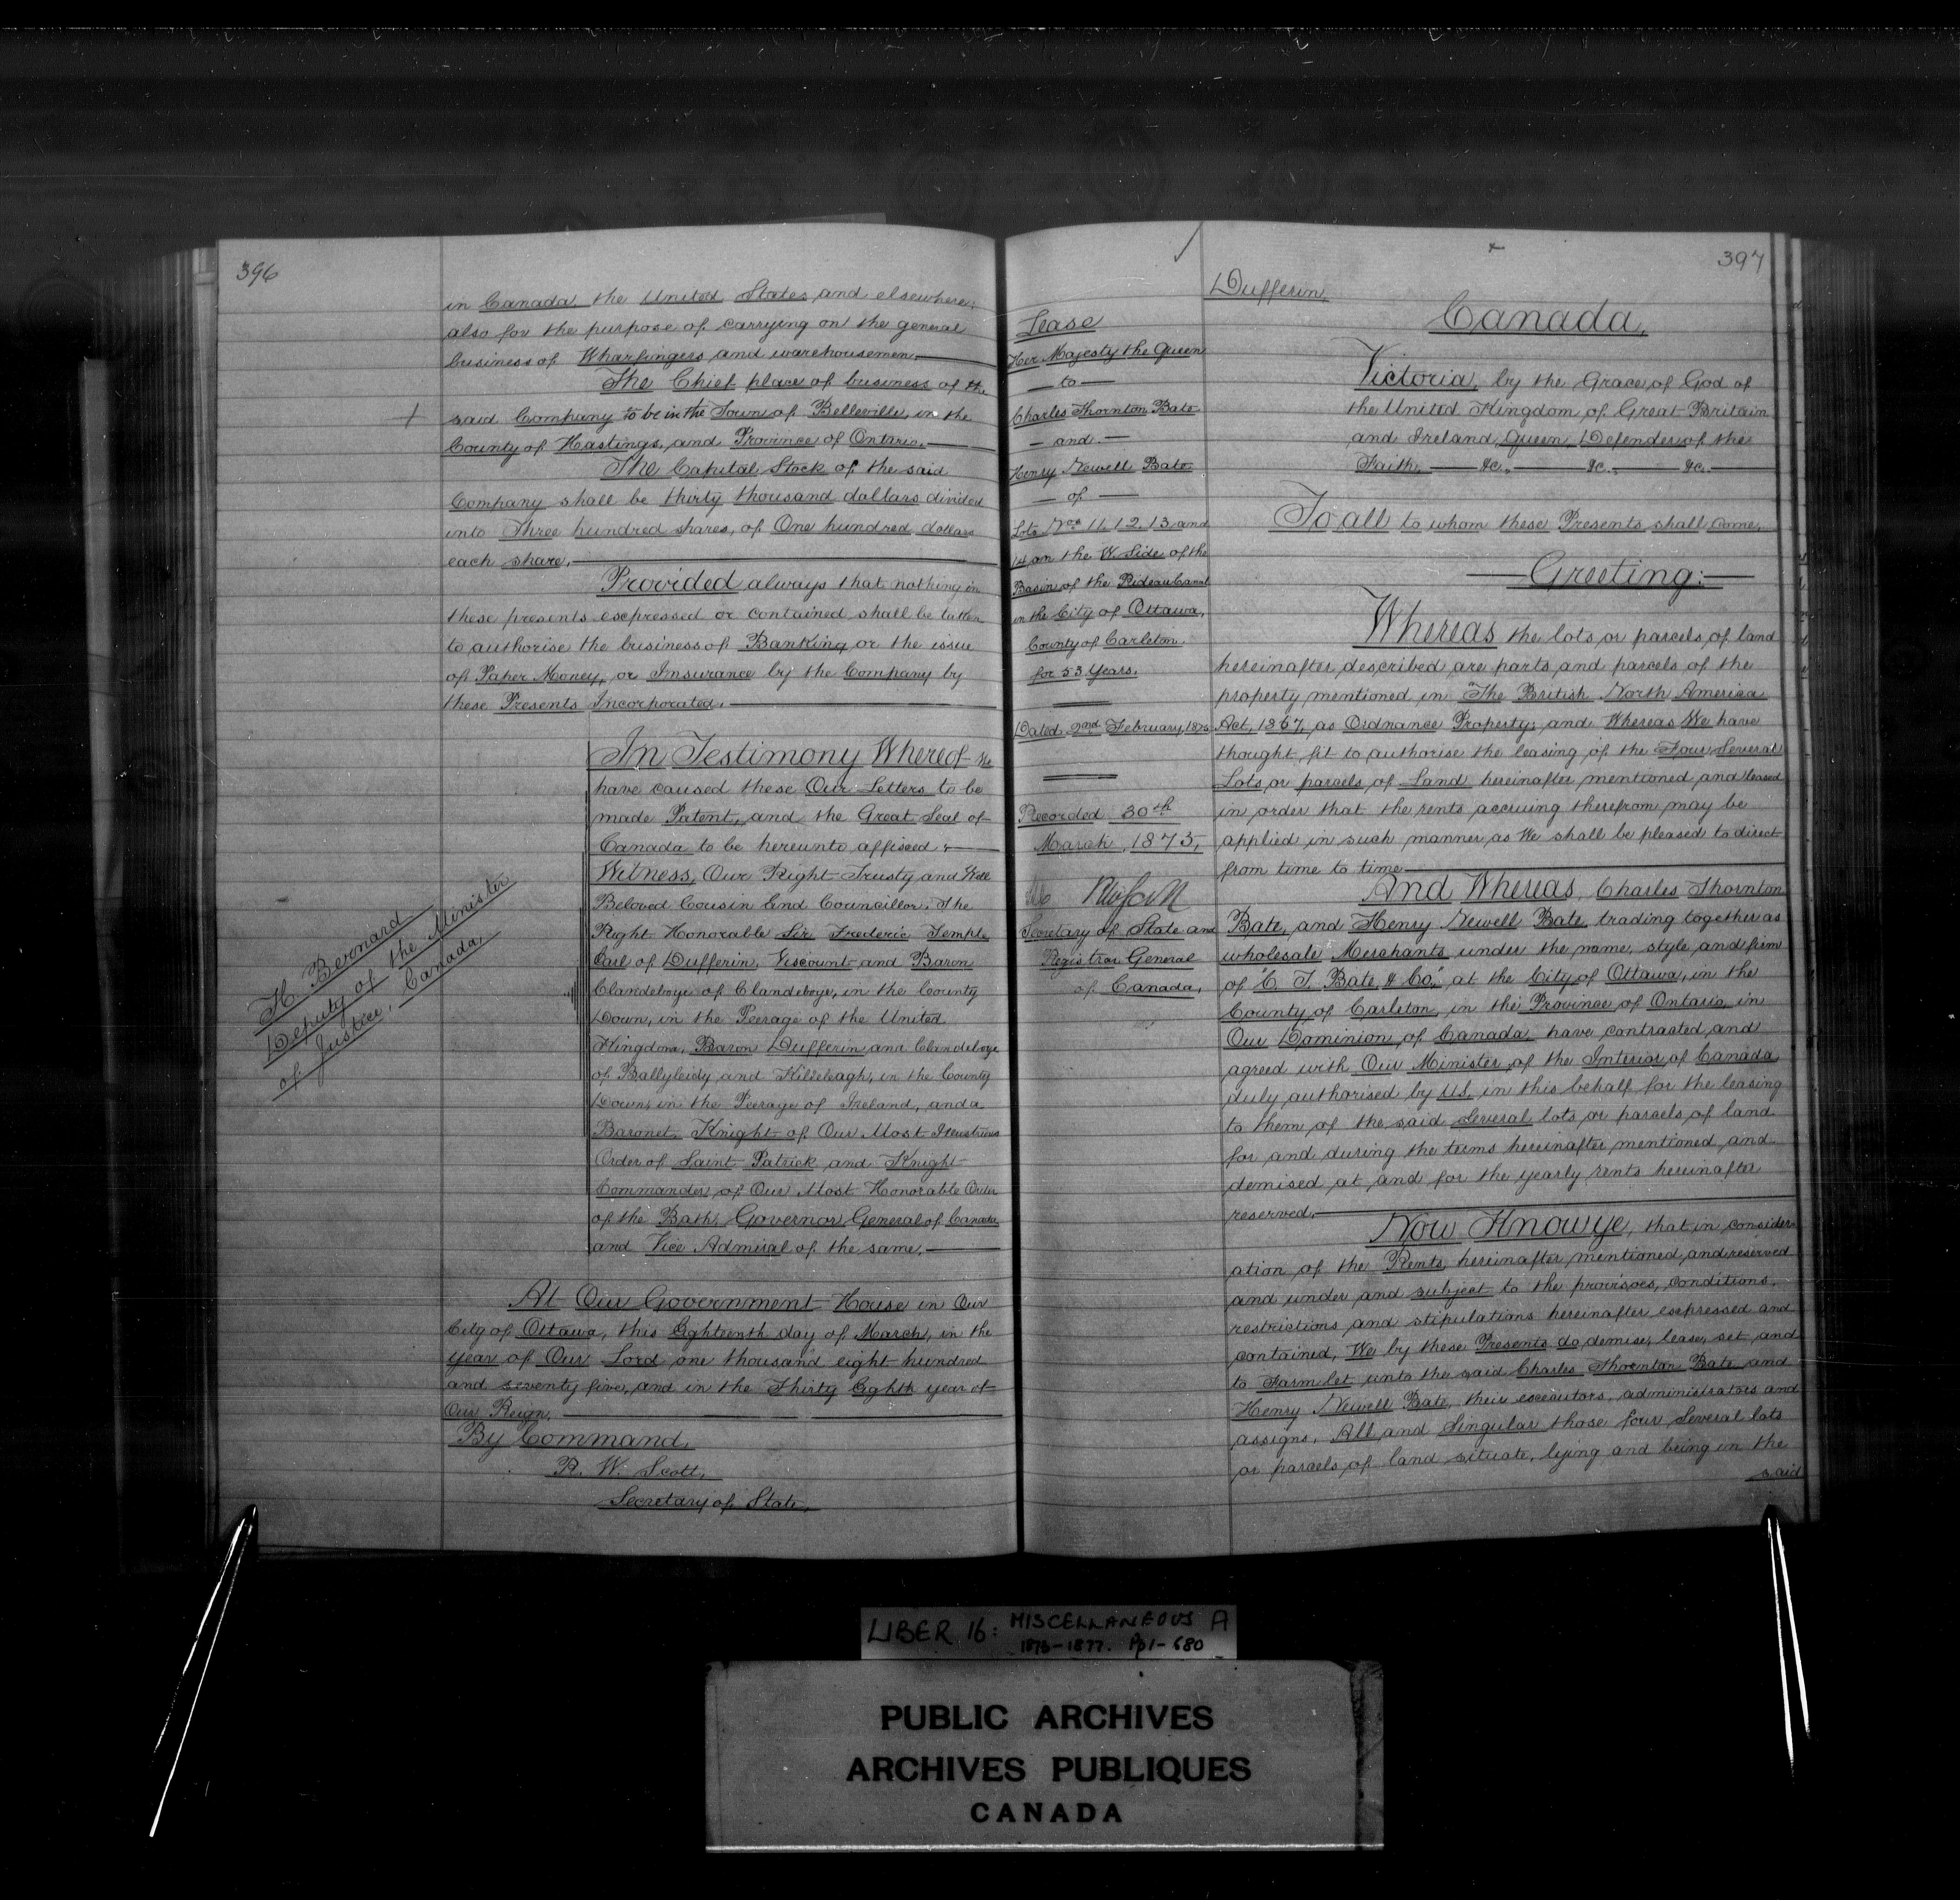 396
in Canada, the United States and elsewhere;
also for the purpose of carrying on the general
business of Wharfingers and warehousemen.
The Chief place of business of the
said Company to be in the Town of Belleville, in the
County of Hastings, and Province of Ontario.
The Capital Stock of the said
Company shall be thirty thousand dollars divided
into Three hundred shares, of One hundred dollars
each share.
Provided always that nothing in
these presents expressed or contained shall be taken
to authorise the business of Banking or the issue
of Paper Money, or Insurance by the Company by
these Presents Incorporated.
In Testimony Whereof We
have caused these Our Letters to be
made Patent, and the Great Seal of
Canada to be hereunto affixed:
Witness, Our Right Trusty and Well
Beloved Cousin and Councillor, The
Right Honorable Sir Frederic Temple
Earl of Dufferin, Viscount and Baron
Clandeboye of Clandeboye, in the County
Down, in the Peerage of the United
Kingdom, Baron Dufferin and Clandeboye
of Ballyleidy and Killeleagh, in the County
Down, in the Peerage of Ireland, and a
Baronet, Knight of Our Most Illustrious
Order of Saint Patrick and Knight
Commander of Our Most Honorable Order
of the Bath, Governor General of Canada
and Vice Admiral of the same.
At Our Government House in Our
City of Ottawa, this Eighteenth day of March, in the
year of Our Lord one thousand eight hundred
and seventy five, and in the Thirty Eighth year of
Our Reign.
By Command,
R. W. Scott,
Secretary of State.
H Bernard
Deputy of the Minister
of Justice, Canada,
397
Lease
Her Majesty the Queen
to
Charles Thornton Bate
and
Henry Newell Bate
of
Lots Nos 11. 12. 13 and
14 on the W. Side of the
Basin of the Rideau Canal
in the City of Ottawa,
County of Carleton
for 53 Years.
Dated 2nd February, 1875
Recorded 30th
March, 1875,
Secretary of State and
Registrar General
of Canada,
Dufferin
Canada,
Victoria, by the Grace of God of
the United Kingdom of Great Britain
and Ireland, Queen, Defender of the
Faith, &c., &c. &c.
To all to whom these Presents shall come,
Greeting:
Whereas the lots or parcels of land
hereinafter described are parts and parcels of the
property mentioned in "The British North America
Act, 1867, as Ordnance Property; and Whereas We have
thought fit to authorise the leasing of the Four Several
Lots or parcels of Land hereinafter mentioned and leased
in order that the rents accruing therefrom may be
applied in such manner as We shall be pleased to direct
from time to time.
And Whereas, Charles Thornton
Bate, and Henry Newell Bate, trading together as
wholesale Merchants under the name, style and firm
of "C. T. Bate & Co," at the City of Ottawa, in the
County of Carleton, in the Province of Ontario in
Our Dominion of Canada, have contracted and
agreed with Our Minister of the Interior of Canada
duly authorised by us, in this behalf for the leasing
to them of the said Several lots or parcels of land
for and during the terms hereinafter mentioned and
demised at and for the yearly rents hereinafter
reserved.
Now Know ye, that in consider-
ation of the Rents hereinafter mentioned and reserved
and under and subject to the provisoes, conditions,
restrictions and stipulations hereinafter expressed and
contained, We by these Presents do demise, lease, set and
to Farm let unto the said Charles Thornton Bate and
Henry Newell Bate, their executors, administrators and
assigns, All and Singular those four Several lots
or parcels of land situate, lying and being in the
said
LIBER 16: MISCELLANEOUS A
1873-1877. Pp 1-680
PUBLIC ARCHIVES
ARCHIVES PUBLIQUES
CANADA